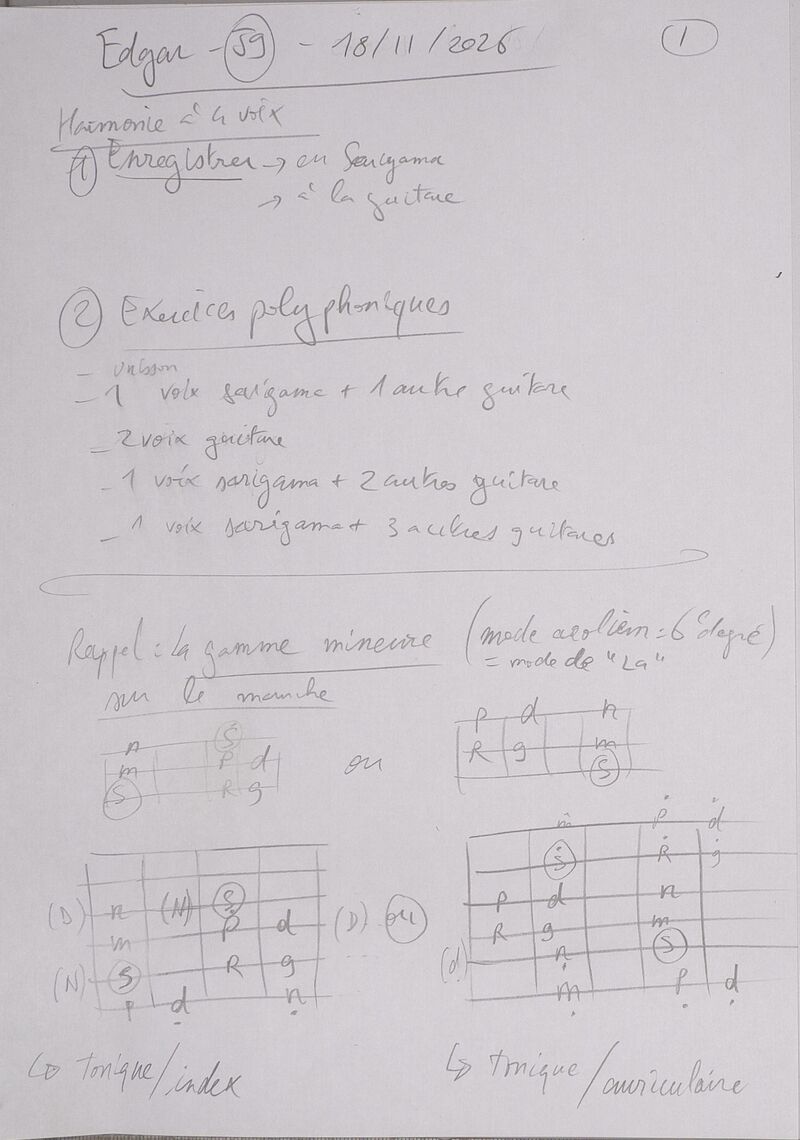 Edgar - 59 - 18/11/2026 1
Harmonie à 4 voix
1 Enregistrer → en Sarigama
→ à la guitare
2 Exercices polyphoniques
- unisson
- 1 voix sarigama + 1 autre guitare
- 2 voix guitare
- 1 voix sarigama + 2 autres guitare
- 1 voix sarigama + 3 autres guitares
Rappel : la gamme mineure (mode aeolien = 6e degré)
= mode de "La"
sur le manche
n Ṡ
m P d
S R g
ou
P d n
R g m
S
(D) n (N) Ṡ
m P d (D)
(N) S R g
P ḍ ṇ
ou
ṁ Ṗ ḋ
Ṡ Ṙ ġ
P d n
R g m
(d) ṇ S
ṃ P̣ ḍ
↳ tonique/index
↳ tonique/auriculaire